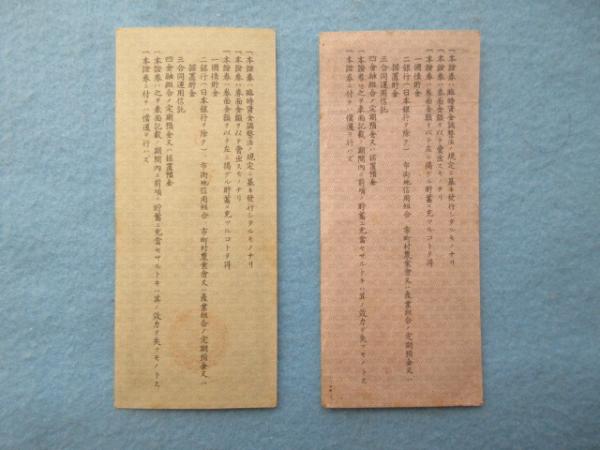 一、本證券ハ臨時資金調整法ノ規定ニ基キ發行シタルモノナリ
一、本證券ハ券面金額ヲ以テ賣出スモノナリ
一、本證券ハ券面金額ヲ以テ左ニ揭グル貯蓄ニ充ツルコトヲ得
一國債貯金
二銀行(日本銀行ヲ除ク)市街地信用組合、市町村農業會又ハ產業組合ノ定期預金又ハ
据置貯金
三合同運用信託
四金融組合ノ定期預金又ハ据置預金
一、本證券ハ之ヲ表面記載ノ期間內ニ前項ノ貯蓄ニ充當セザルトキハ其ノ效力ヲ失フモノトス
一、本證券ニ付テハ償還ヲ行ハズ
一、本證券ハ臨時資金調整法ノ規定ニ基キ發行シタルモノナリ
一、本證券ハ券面金額ヲ以テ賣出スモノナリ
一、本證券ハ券面金額ヲ以テ左ニ揭グル貯蓄ニ充ツルコトヲ得
一國債貯金
二銀行(日本銀行ヲ除ク)市街地信用組合、市町村農業會又ハ產業組合ノ定期預金又ハ
据置貯金
三合同運用信託
四金融組合ノ定期預金又ハ据置預金
一、本證券ハ之ヲ表面記載ノ期間內ニ前項ノ貯蓄ニ充當セザルトキハ其ノ效力ヲ失フモノトス
一、本證券ニ付テハ償還ヲ行ハズ